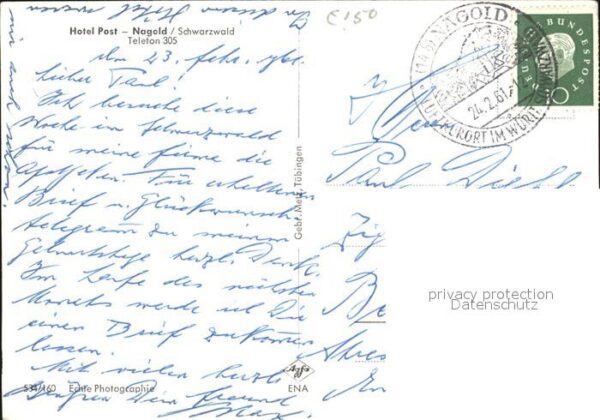 In diesem Hotel wohnen
Hotel Post – Nagold / Schwarzwald
Telefon 305
£ 1 50
den 23. Febr. 1961.
Lieber Paul!
Ich besuche diese
Woche im Schwarzwald
für meine Firma die
Apotheken. Für erhaltenen
Brief u. Glückwunsch-
telegramm zu meinem
Geburtstage herzl. Dank.
Im Laufe des nächsten
Monats werde ich Dir
einen Brief zukommen
lassen.
Mit vielen herzl.
Grüßen Dein Freund
Max.
534/160 Echte Photographie
Gebr. Metz, Tübingen
Agfa
ENA
NAGOLD
24.2.61
LUFTKURORT IM WÜRTT.
DEUTSCHE BUNDESPOST
10
Herrn
Paul
privacy protection
Datenschutz